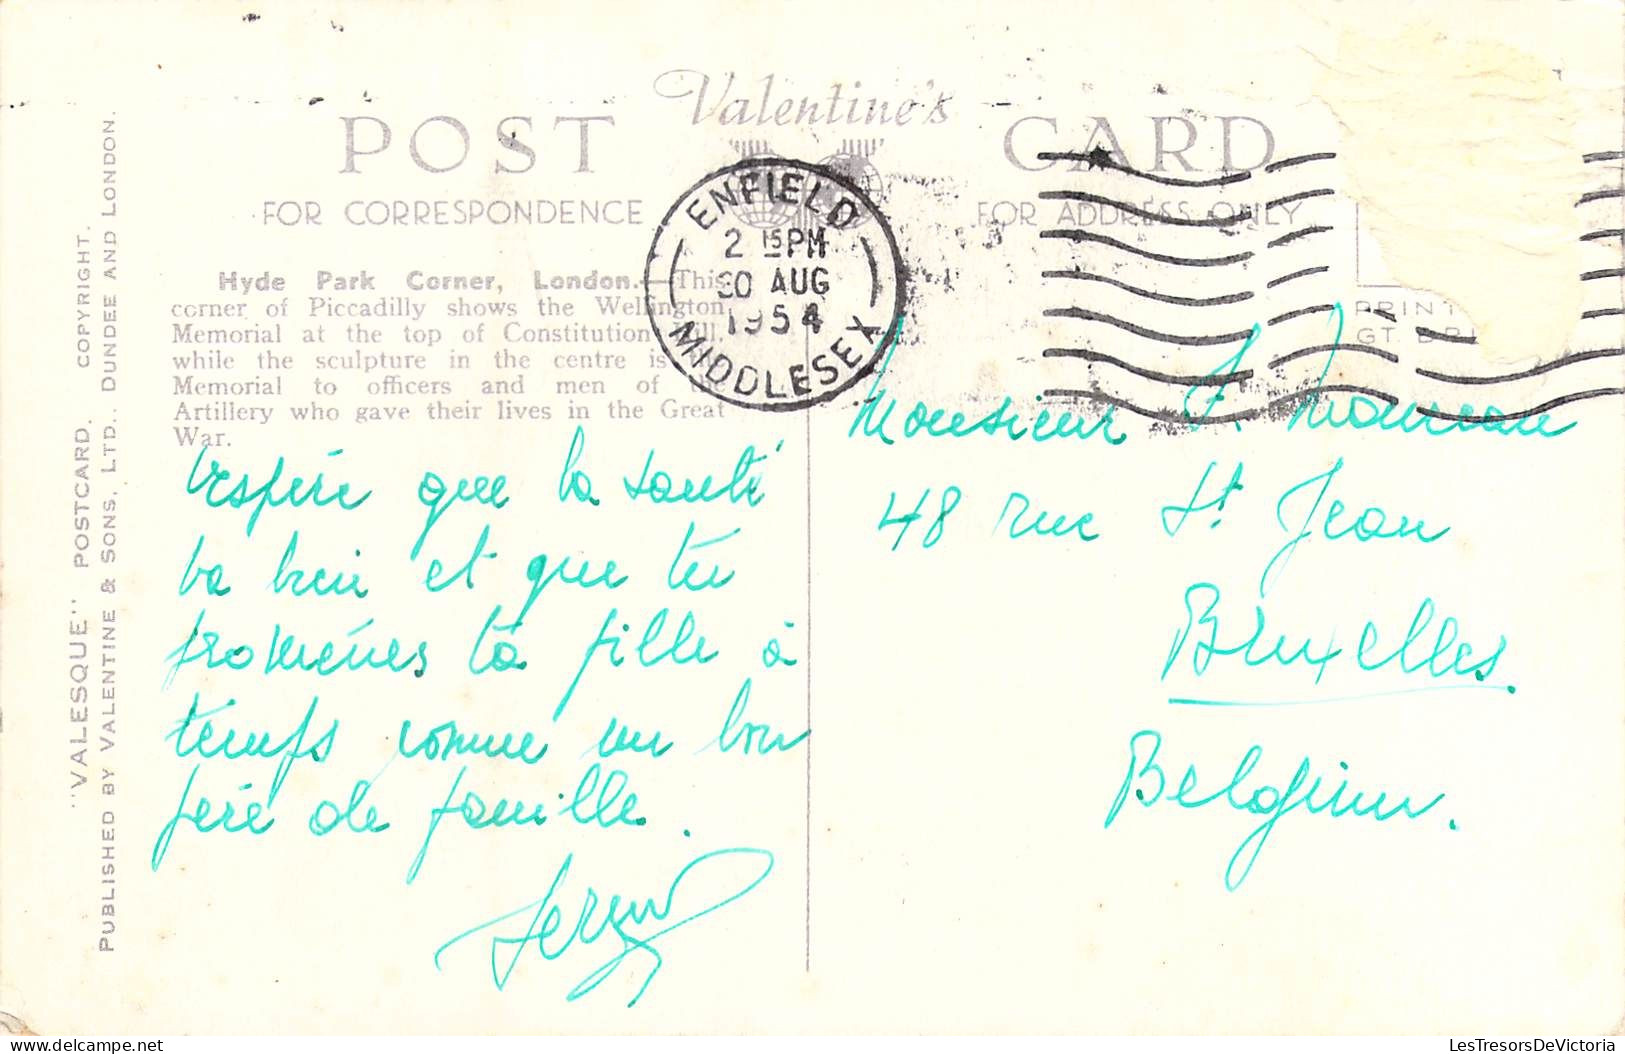 Valentine's
POST CARD
FOR CORRESPONDENCE
FOR ADDRESS ONLY
ENFIELD
2 15 PM
AUG
1954
MIDDLESEX
PRINT
GT. B
Hyde Park Corner, London.—This
corner of Piccadilly shows the Wellington
Memorial at the top of Constitution Hill,
while the sculpture in the centre is
Memorial to officers and men of the
Artillery who gave their lives in the Great
War.
"VALESQUE" POSTCARD. COPYRIGHT.
PUBLISHED BY VALENTINE & SONS, LTD., DUNDEE AND LONDON.
que la santé
va bien et que tu
promènes ta fille à
temps comme un bon
père de famille.
Monsieur
48 rue St. Jean
Bruxelles.
Belgium.
LesTresorsDeVictoria